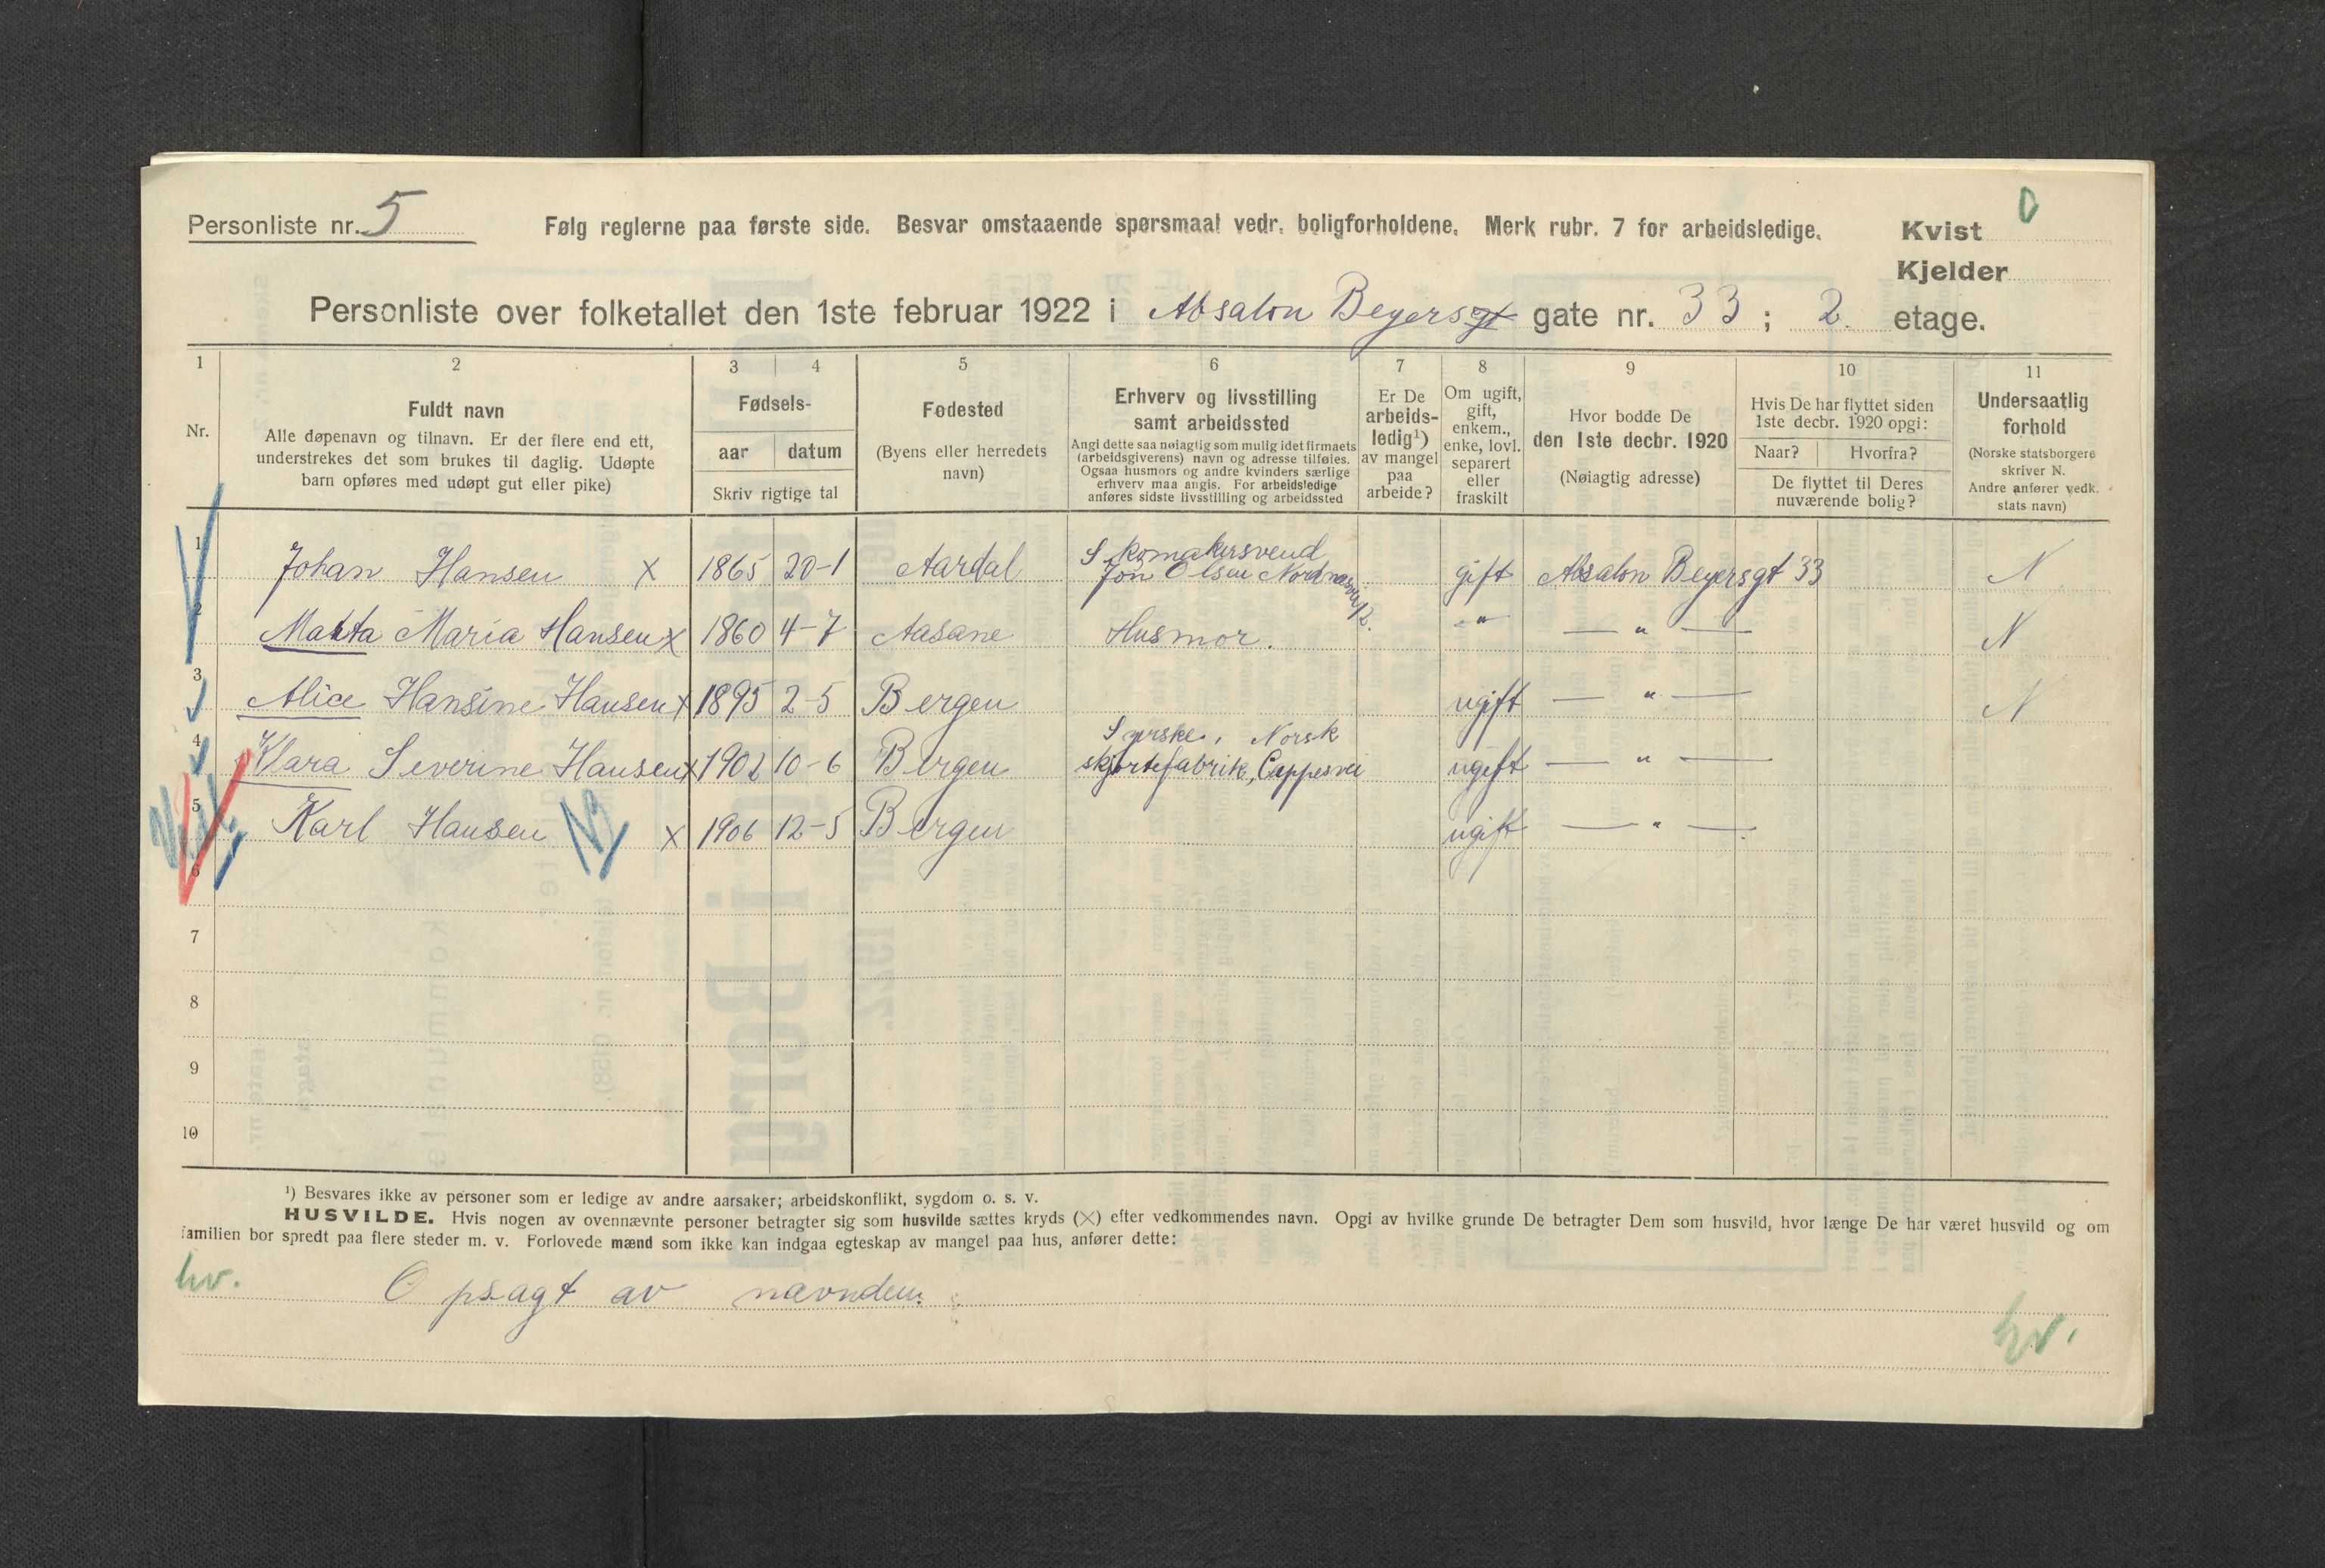 Personliste nr. 5
Følg reglerne paa første side. Besvar omstaaende spørsmaal vedr. boligforholdene. Merk rubr. 7 for arbeidsledige.
Kvist
Kjelder
Personliste over folketallet den 1ste februar 1922 i Absalon Beyersgt gate nr. 33 ; 2. etage.
1 2 3 4 5 6 7 8 9 10 11
Nr.
Fuldt navn
Alle døpenavn og tilnavn. Er der flere end ett,
understrekes det som brukes til daglig. Udøpte
barn opføres med udøpt gut eller pike)
Fødsels-
aar datum
Skriv rigtige tal
Fødested
(Byens eller herredets
navn)
Erhverv og livsstilling
samt arbeidssted
Angi dette saa nøiagtig som mulig idet firmaets
(arbeidsgiverens) navn og adresse tilføies.
Ogsaa husmors og andre kvinders særlige
erhverv maa angis. For arbeidsledige
anføres sidste livsstilling og arbeidssted
Er De
arbeids-
ledig¹)
av mangel
paa
arbeide?
Om ugift,
gift,
enkem.,
enke, lovl.
separert
eller
fraskilt
Hvor bodde De
den 1ste decbr. 1920
(Nøiagtig adresse)
Hvis De har flyttet siden
1ste decbr. 1920 opgi:
Naar? Hvorfra?
De flyttet til Deres
nuværende bolig?
Undersaatlig
forhold
(Norske statsborgere
skriver N.
Andre anfører vedk.
stats navn)
1 Johan Hansen x 1865 20-1 Aardal Skomakersvend Jon Olsen gift Absalon Beyersgt 33 N
2 Marta Maria Hansen x 1860 4-7 Aasane Husmor. " — " — N
3 Alice Hansine Hansen x 1895 2-5 Bergen ugift — " — N
4 Klara Severine Hansen x 1902 10-6 Bergen Syerske, Norsk skjortefabrik, Cappesvei ugift — " —
5 Karl Hansen N x 1906 12-5 Bergen ugift — " —
6
7
8
9
10
¹) Besvares ikke av personer som er ledige av andre aarsaker; arbeidskonflikt, sygdom o. s. v.
HUSVILDE. Hvis nogen av ovennævnte personer betragter sig som husvilde sættes kryds (×) efter vedkommendes navn. Opgi av hvilke grunde De betragter Dem som husvild, hvor længe De har været husvild og om
familien bor spredt paa flere steder m. v. Forlovede mænd som ikke kan indgaa egteskap av mangel paa hus, anfører dette:
hv. Opsagt av nævnden.
hv.